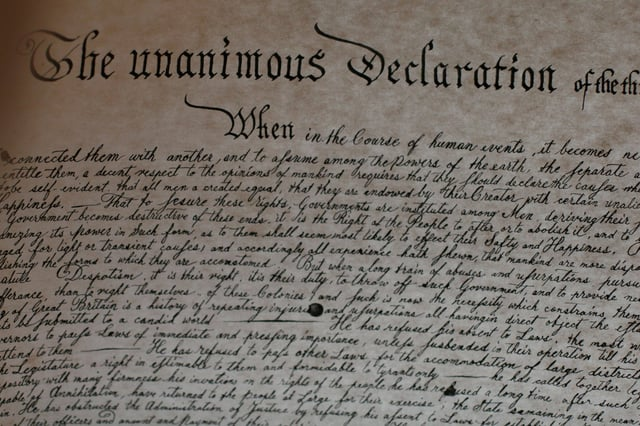 The unanimous Declaration of the th
When in the Course of human events, it becomes ne
connected them with another, and to assume among the Powers of the earth, the separate a
entitle them, a decent respect to the opinions of mankind requires that they should declare the causes wh
to be self evident, that all men a created equal, that they are endowed by their Creator with certain unalie
appiness. That to secure these rights, Governments are instituted among Men, deriving their
Government becomes destructive of these ends, it is the Right of the People to alter or to abolish it, and to
anizing its power in such form, as to them shall seem most likely to effect their Safty and Happiness.
ged for light or transient causes; and accordingly all experience hath shewn, that mankind are more disp
lishing the forms to which they are accustomed. But when a long train of abuses and usurpations pursu
Despotism, it is their right, it is their duty, to throw off such Government, and to provide n
fferance, than to right themselves of these Colonies; and such is now the necessity which constrains them
g of Great Britain is a history of repeating injuries and usurpations all having in direct object the
to be submitted to a candid world He has refused his absent to Laws, the most w
ernors to pass Laws of immediate and pressing importance, unless suspended in their operation till his
ttend to them He has refused to pass other Laws for the accommodation of large district
he Legislature a right in estimable to them and formidable to tyrants only he has called together
pository with many firmness his invations on the rights of the people he has refused a long time after such
pable of Annihilation, have returned to the People at Large for their exercise; the State remaining in the mean
in. He has obstructed the Administration of Justice by refusing his absent to Laws for
of their officers and amount and Payment of